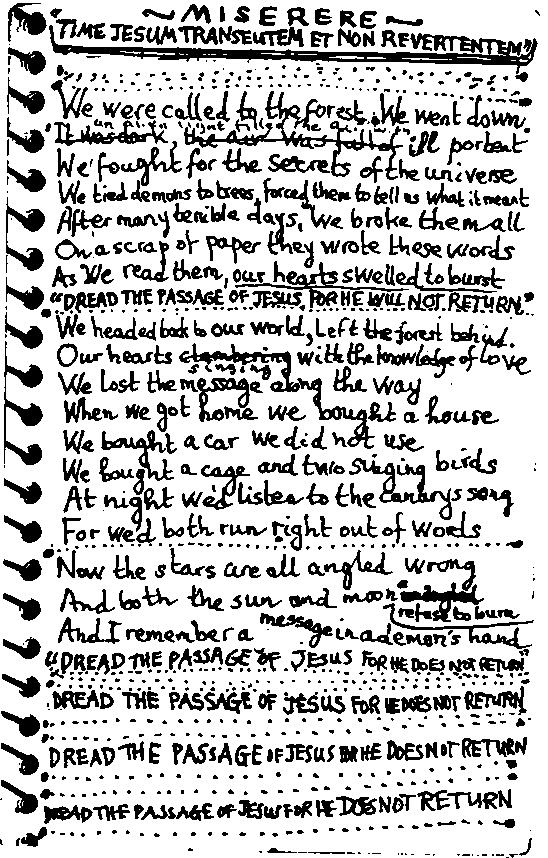 ~MISERERE~
"TIME JESUM TRANSEUTEM ET NON REVERTENTEM"
We were called to the forest. We went down.
It was dark, the air was full of ill portent
We fought for the secrets of the universe
We tied demons to trees, forced them to tell us what it meant
After many terrible days, We broke them all
On a scrap of paper they wrote these words
As We read them, our hearts swelled to burst
"DREAD THE PASSAGE OF JESUS, FOR HE WILL NOT RETURN."
We headed back to our world, Left the forest behind.
Our hearts clambering singing with the knowledge of Love
We lost the message along the way
When we got home we bought a house
We bought a car we did not use
We bought a cage and two singing birds
At night we'd listen to the canarys song
For we'd both run right out of words
Now the stars are all angled wrong
And both the sun and moon
refuse to burn
And I remember a message in a demon's hand
"DREAD THE PASSAGE OF JESUS FOR HE DOES NOT RETURN"
DREAD THE PASSAGE OF JESUS FOR HE DOES NOT RETURN
DREAD THE PASSAGE OF JESUS FOR HE DOES NOT RETURN
DREAD THE PASSAGE OF JESUS FOR HE DOES NOT RETURN